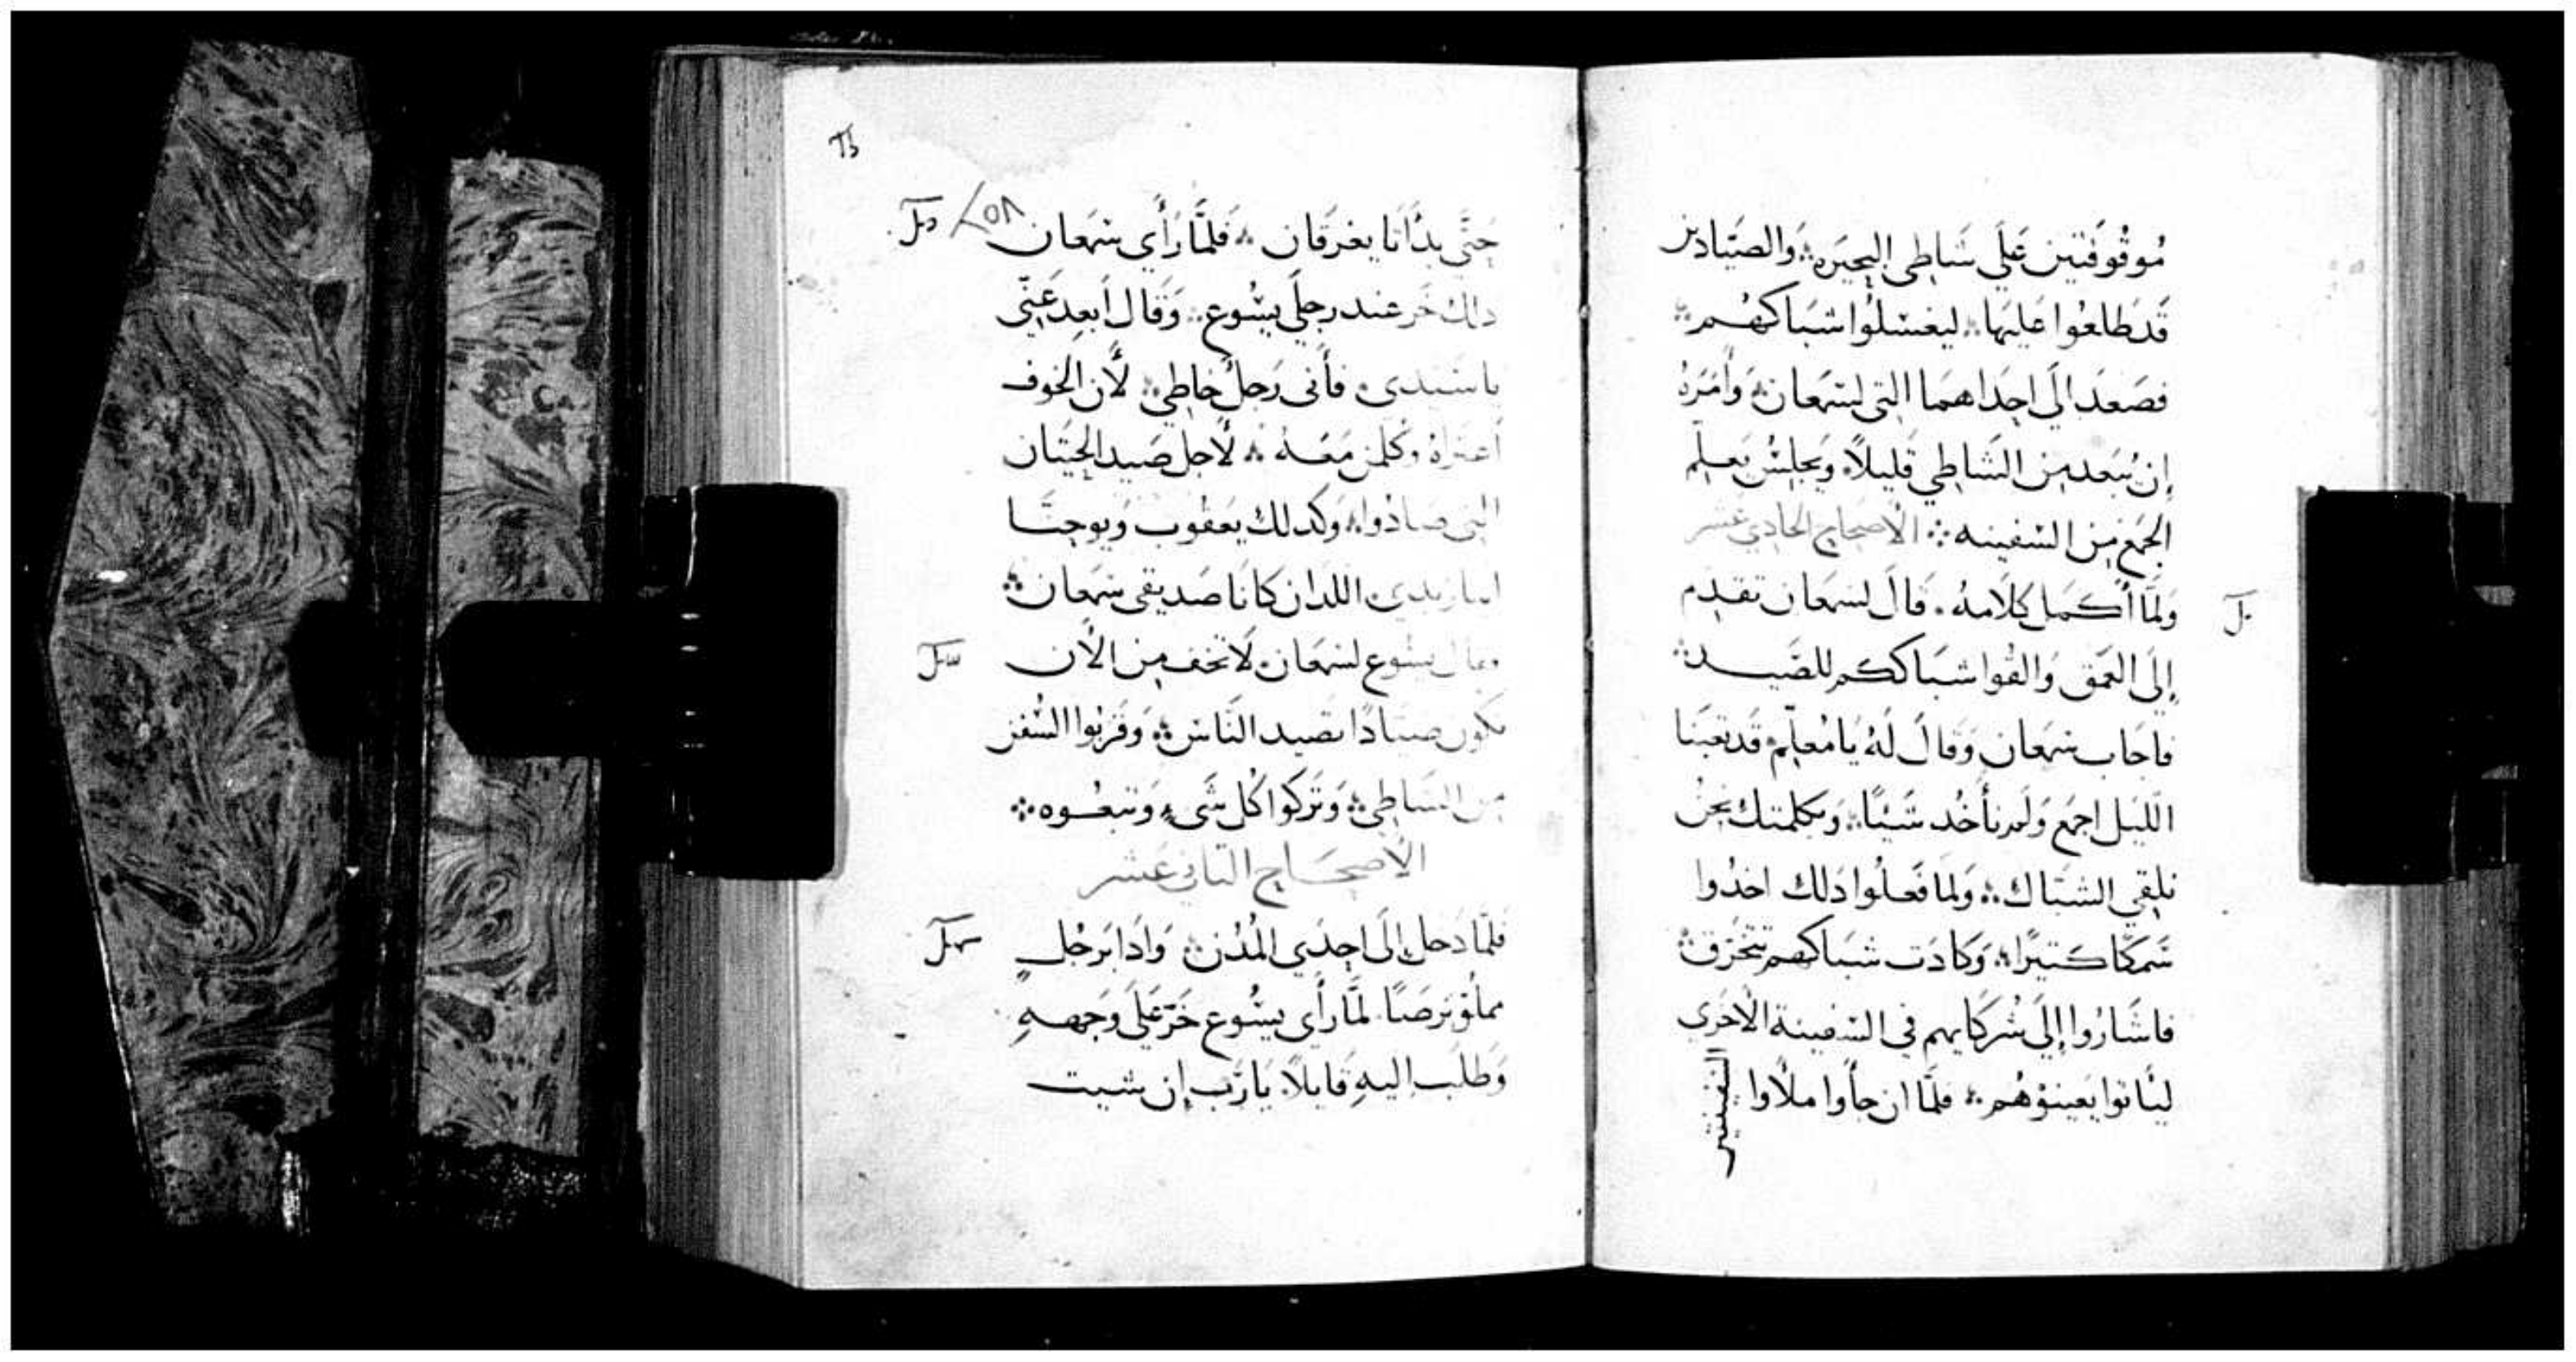 مُوقُوفتين عَلَي شَاطِي البحَيره۞ وَالصيَّادين
قَد طَلعُوا عَليهَا۞ ليغسلُوا شبَاكهُم۞
فصَعَد الَي احِداهمَا التي لسَمعَان۞ وَأمَرهُ
إن يُبعد مِن الشَاطِي قليلاً۞ وَجلسَ يعَلِم
الجَمع مِن السَفينه۞ الاصحَاح الحَادِي عَشر
وَلمَّا أكمل كلَامهُ۞ قَالَ لسمعَان تقدِم
إلَي العَمق وَالقُوا شبَاككم للصَيد۞
فاجَاب سمعَان وَقَالَ لَهُ يَا مُعلِّم۞ قَد تعَبنَا
الَليل اجمَع وَلَم نأخُد شَيئًا۞ وَبكلمتك نحنُ
نلقِي الشبَاك۞ وَلما فَعلُوا دَلك اخدُوا
سَمكًا كتيرًا۞ وَكَادَت شبَاكهم تتخَرق۞
فاشَارُوا إلَي شُركَايهم في السَفينة الاخَري
ليَاتوا يَعينوُهُم۞ فلَمَّا ان جَأوا ملأوا السَفينتين
بل
حَتَّي بدَأتَا يغرقَان۞ فَلمَّا رَأَي سمعَان
٨٥٧
دلك خَر عند رجلَي يسُوع۞ وَقَال ابعِد عَنِّي
يا سَيدي۞ فأني رَجلُ خَاطِي۞ لأن الخوف
أعترَاهُ وَكُلمن مَعَهُ۞ لأجل صَيد الحيتَان
التي صَادُوا۞ وَكدلك يَعقُوب وَيوحنَّا
ابنا زبدي اللدَان كانَا صَديقي سمعَان۞
وقال يسُوع لسمعَان۞ لَا تخف مِن الأن
تكون صيَادًا تصَيد النَاس۞ وَقَربُوا السُفن
من الشاطِي۞ وَتَركوا كُل شَيء وَتبعُوه۞
الاصحَاح التاني عَشر
فلَمَّا دَخل إلَي احِدَي المُدُن۞ وَادَا برَجُلٍ
مملُؤ برَصًا لمَّا رأَي يسُوع خَرَّ عَلَي وَجههِ
وَطلَب اليهِ قَايلاً۞ يَا رَب إن شيت